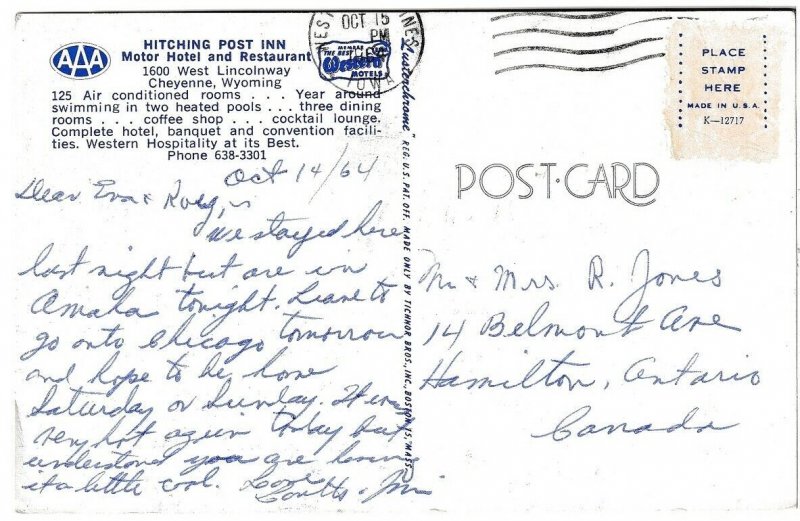 AAA
HITCHING POST INN
Motor Hotel and Restaurant
1600 West Lincolnway
Cheyenne, Wyoming
125 Air conditioned rooms . . . Year around
swimming in two heated pools . . . three dining
rooms . . . coffee shop . . . cocktail lounge.
Complete hotel, banquet and convention facili-
ties. Western Hospitality at its Best.
Phone 638-3301
MEMBER
THE BEST
Western
MOTELS
OCT 15
PM
IOWA
"Lusterchrome" REG. U.S. PAT. OFF. MADE ONLY BY TICHNOR BROS., INC., BOSTON 15, MASS.
PLACE
STAMP
HERE
MADE IN U.S.A.
K—12717
POST-CARD
Oct 14/64
Dear Eva &
We stayed here
last night but are in
Omaha tonight. Leave to
go onto Chicago tomorrow
and hope to be home
Saturday or Sunday. It was
very hot again today but
understand you are having
it a little cool. Love
Mr & Mrs. R. Jones
14 Belmont Ave
Hamilton, Ontario
Canada